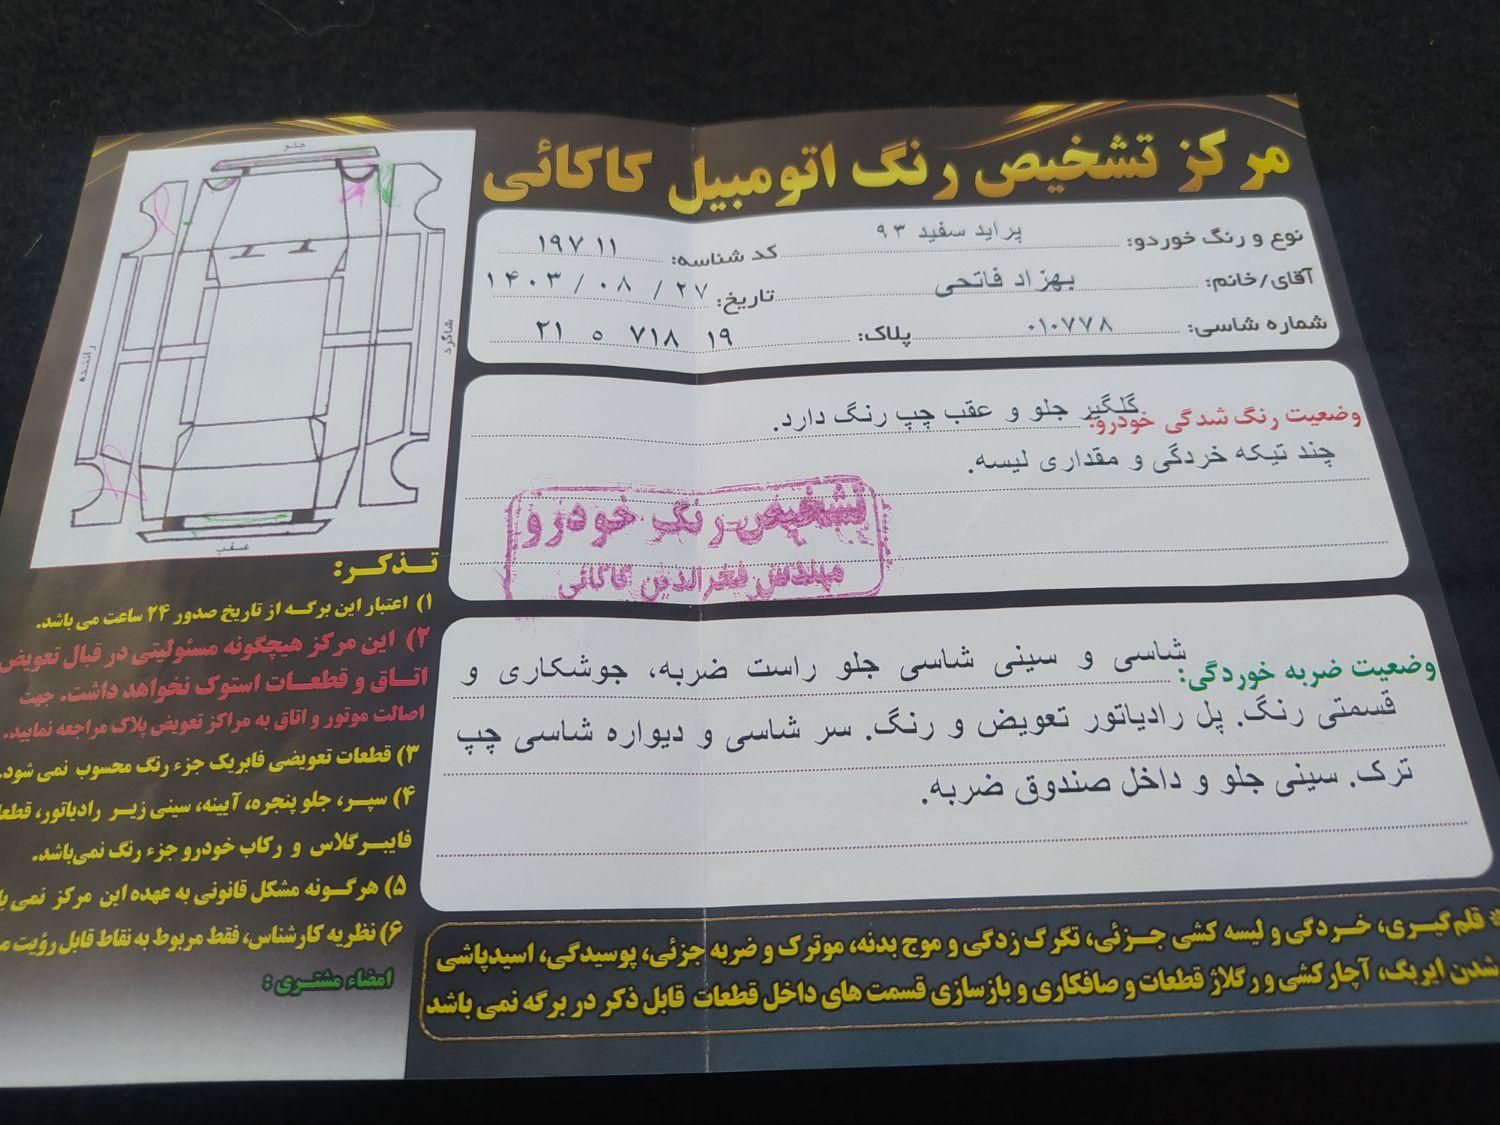 مرکز تشخیص رنگ اتومبیل کاکائی
نوع و رنگ خوردو: پراید سفید ۹۳ کد شناسه: ۱۹۷۱۱
آقای/خانم: بهزاد فاتحی تاریخ: ۱۴۰۳ / ۰۸ / ۲۷
شماره شاسی: ۰۱۰۷۷۸ پلاک: ۱۹ ۷۱۸ ۵ ۲۱
وضعیت رنگ شدگی خودرو: گلگیر جلو و عقب چپ رنگ دارد.
چند تیکه خردگی و مقداری لیسه.
تشخیص رنگ خودرو
مهندس فخرالدین کاکائی
وضعیت ضربه خوردگی: شاسی و سینی شاسی جلو راست ضربه، جوشکاری و
قسمتی رنگ. پل رادیاتور تعویض و رنگ. سر شاسی و دیواره شاسی چپ
ترک. سینی جلو و داخل صندوق ضربه.
* قلم‌گیری، خردگی و لیسه کشی جزئی، تگرگ زدگی و موج بدنه، موترک و ضربه جزئی، پوسیدگی، اسیدپاشی
شدن ایربگ، آچارکشی و رگلاژ قطعات و صافکاری و بازسازی قسمت های داخل قطعات قابل ذکر در برگه نمی باشد
جلو
راننده
شاگرد
عقب
تذکر:
۱) اعتبار این برگه از تاریخ صدور ۲۴ ساعت می باشد.
۲) این مرکز هیچگونه مسئولیتی در قبال تعویض
اتاق و قطعات استوک نخواهد داشت. جهت
اصالت موتور و اتاق به مراکز تعویض پلاک مراجعه نمایید.
۳) قطعات تعویضی فابریک جزء رنگ محسوب نمی شود.
۴) سپر، جلو پنجره، آیینه، سینی زیر رادیاتور،
فایبرگلاس و رکاب خودرو جزء رنگ نمی‌باشد.
۵) هرگونه مشکل قانونی به عهده این مرکز نمی
۶) نظریه کارشناس، فقط مربوط به نقاط قابل رؤیت
امضاء مشتری :